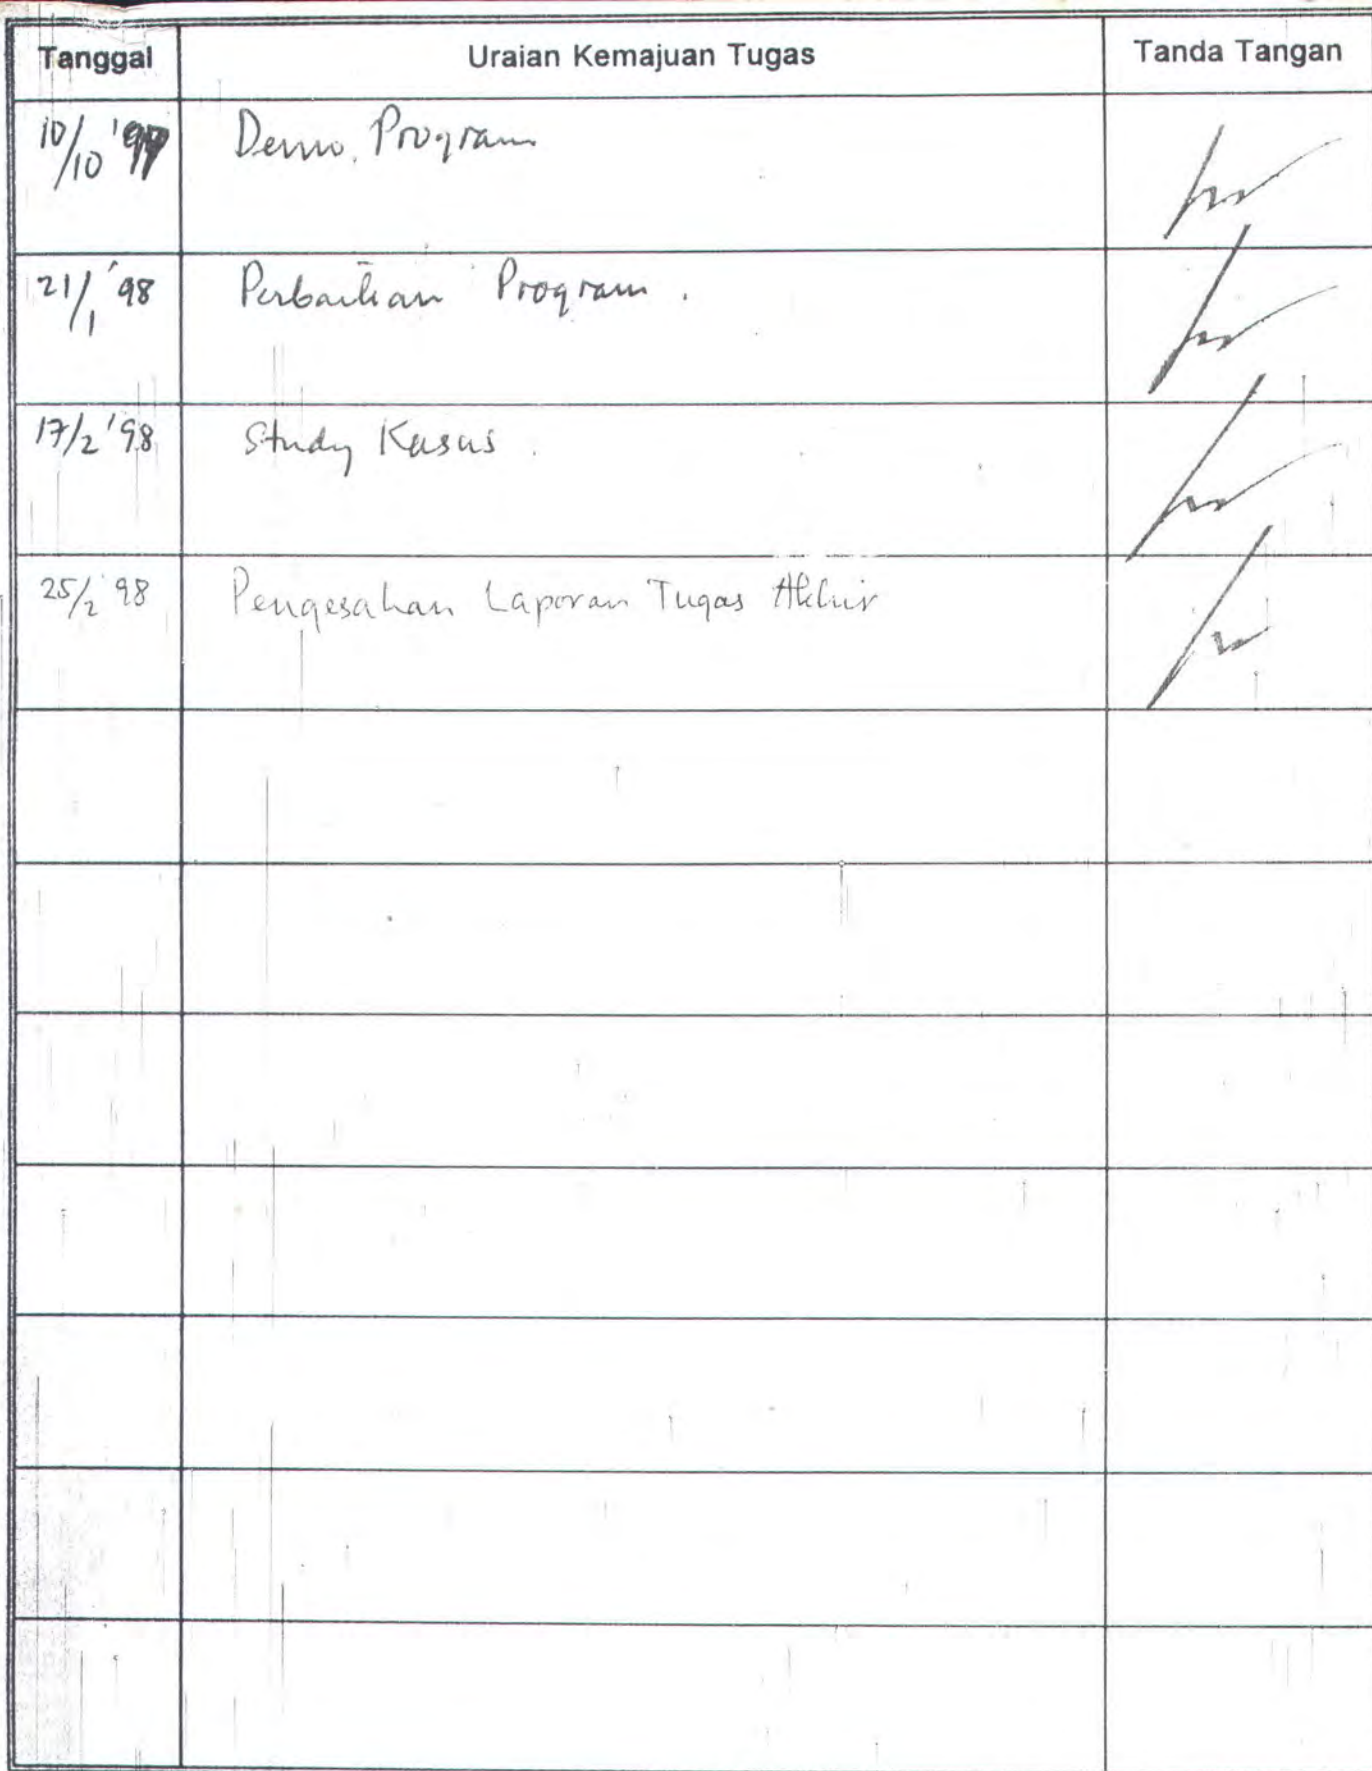 Tanggal Uraian Kemajuan Tugas Tanda Tangan
10/10 '97 Demo Program
21/1 '98 Perbaikan Program.
17/2 '98 Study Kasus.
25/2 '98 Pengesahan Laporan Tugas Akhir